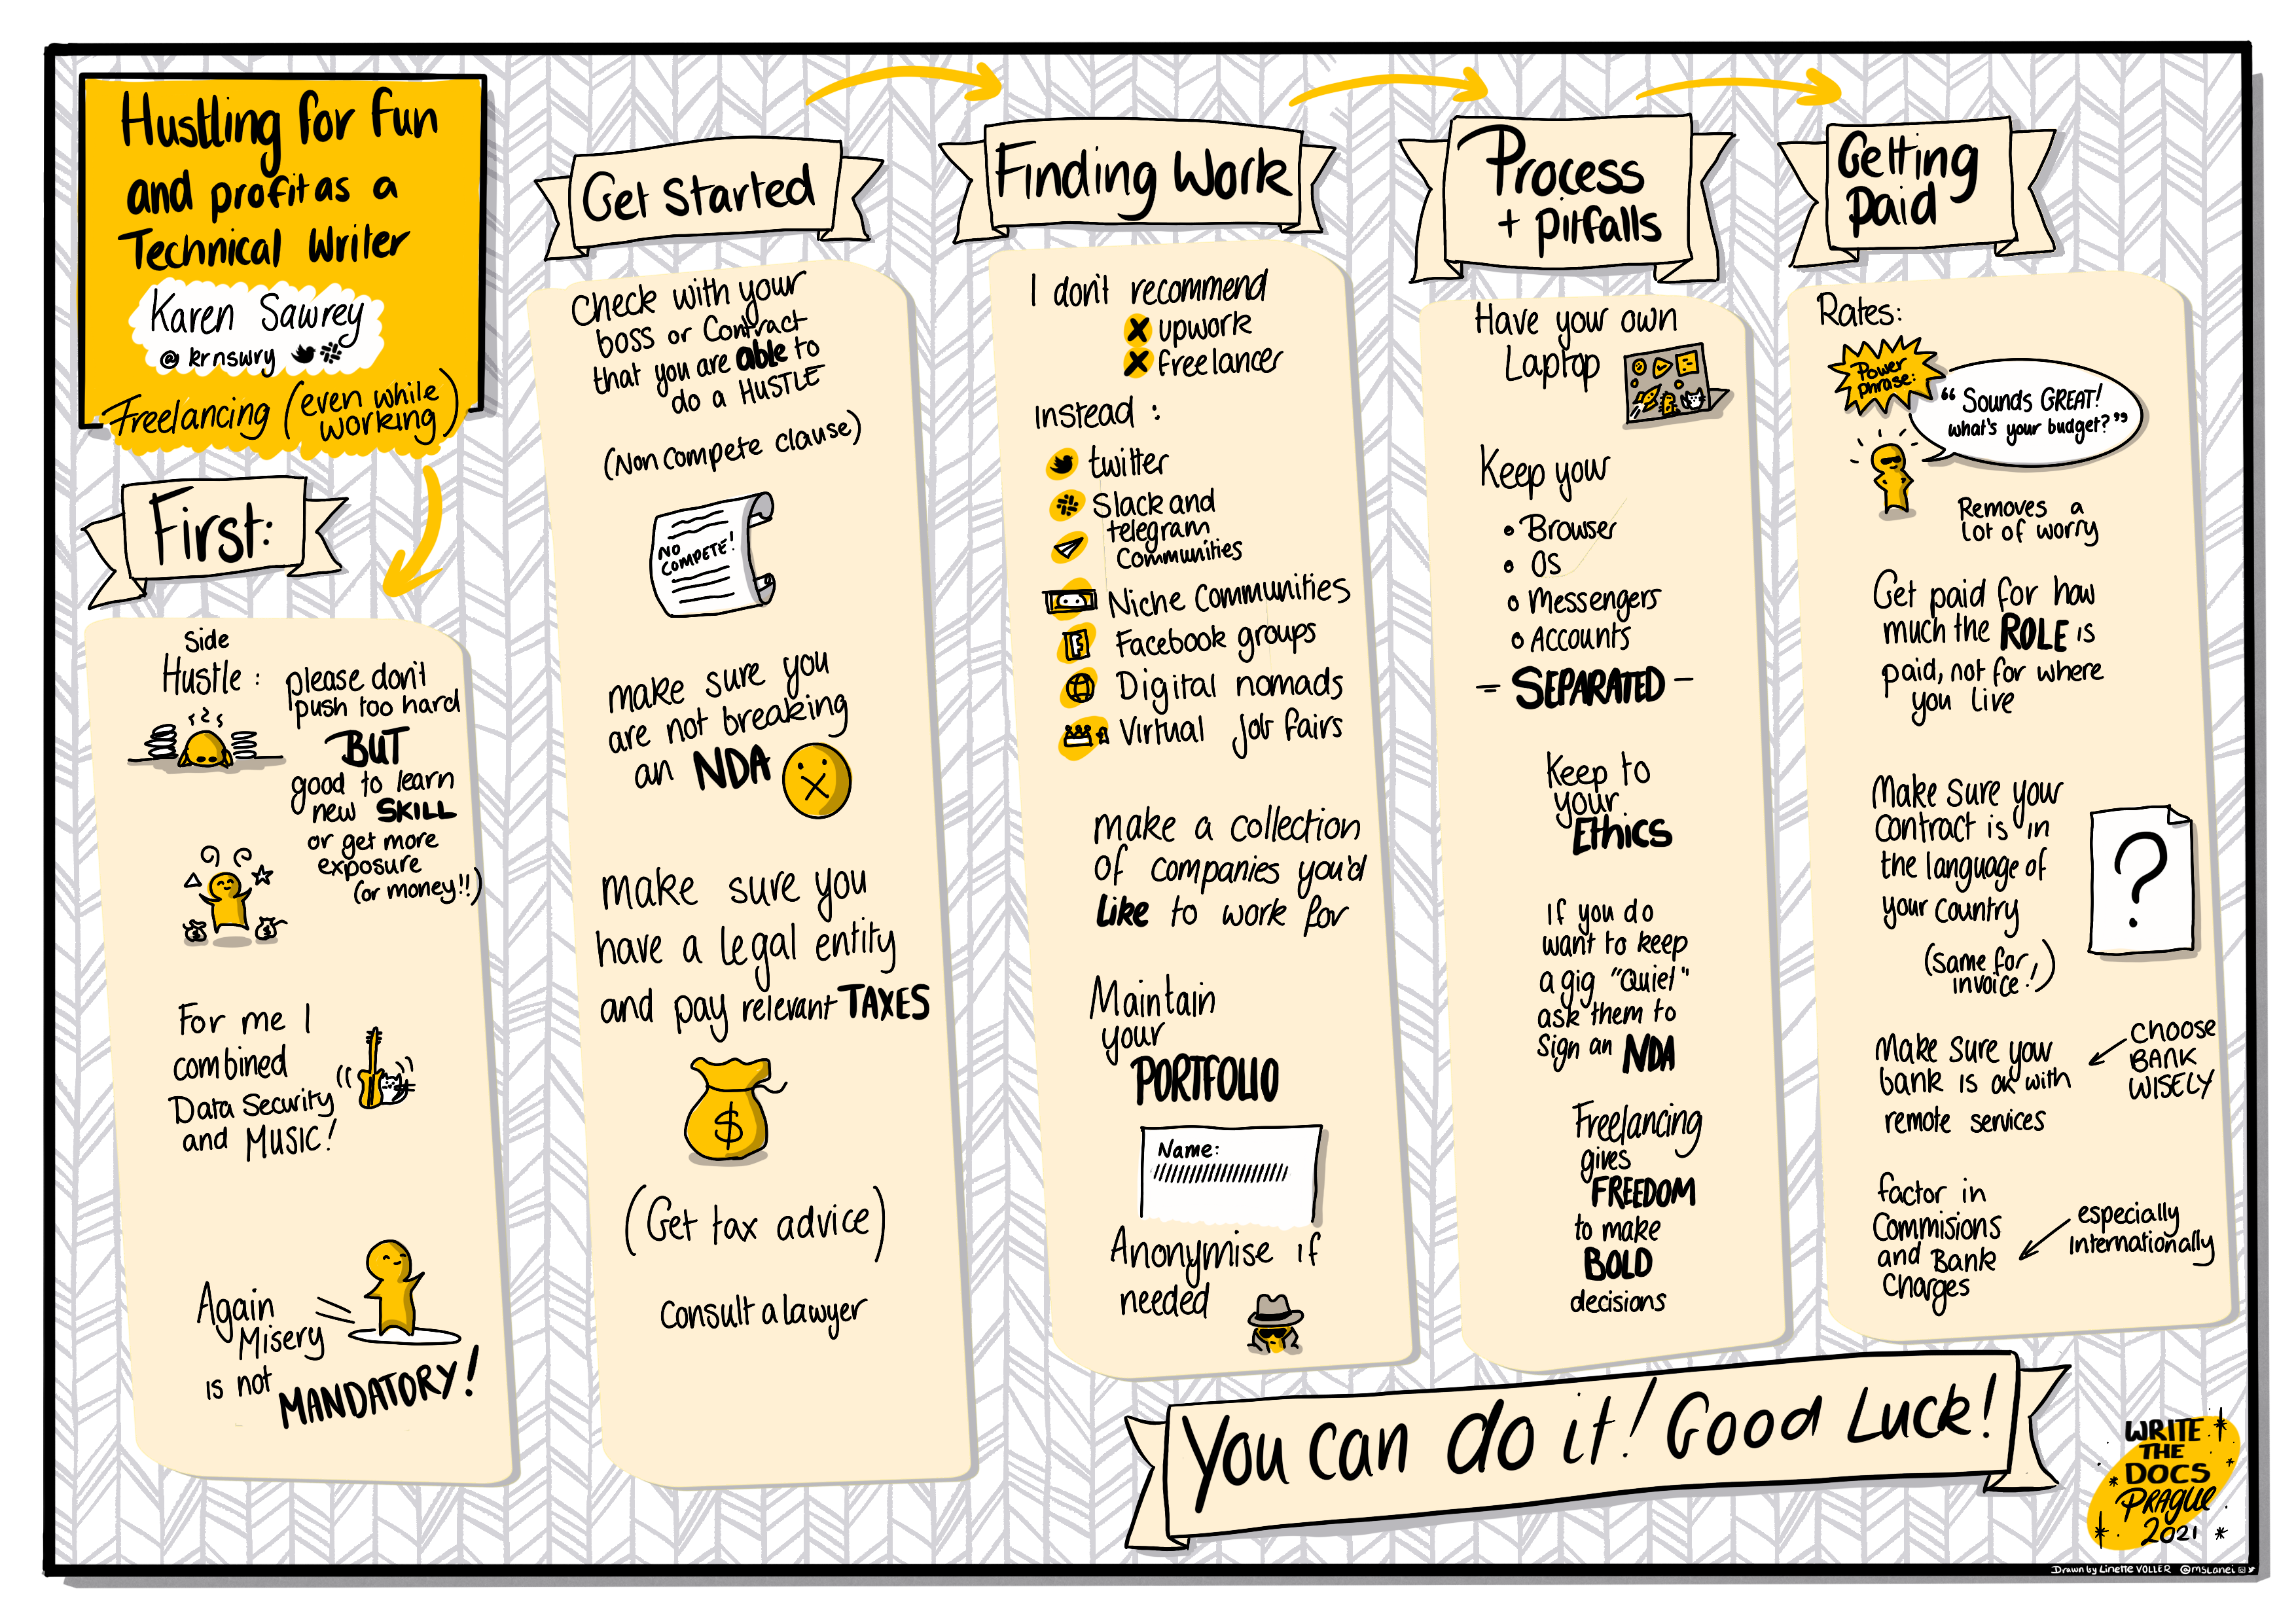 Hustling for Fun
and profit as a
Technical Writer
Karen Sawrey
@krnswry
Freelancing (even while
working)
First:
Side
Hustle:
please don't
push too hard
BUT
good to learn
new SKILL
or get more
exposure
(or money!!)
For me I
combined
Data Security
and MUSIC!
Again
Misery
is not
MANDATORY!
Get Started
Check with your
boss or Contract
that you are able to
do a HUSTLE
(Non Compete clause)
NO
COMPETE!
make sure you
are not breaking
an NDA
make sure you
have a legal entity
and pay relevant TAXES
$
(Get tax advice)
Consult a lawyer
Finding Work
I don't recommend
x upwork
x freelancer
Instead:
twitter
Slack and
telegram
Communities
Niche Communities
Facebook groups
Digital nomads
Virtual job fairs
make a collection
of companies you'd
Like to work for
Maintain
your
PORTFOLIO
Name:
Anonymise if
needed
Process
+ Pitfalls
Have your own
Laptop
Keep your
• Browser
• OS
• Messengers
• Accounts
- SEPARATED -
Keep to
your
Ethics
If you do
want to keep
a gig "Quiet"
ask them to
Sign an NDA
Freelancing
gives
FREEDOM
to make
BOLD
decisions
Getting
Paid
Rates:
Power
phrase:
"Sounds GREAT!
what's your budget?"
Removes a
lot of worry
Get paid for how
much the ROLE is
paid, not for where
you live
Make Sure your
contract is in
the language of
your Country
(same for
invoice!)
?
Make sure your
bank is ok with
remote services
CHOOSE
BANK
WISELY
factor in
Commisions
and Bank
Charges
especially
Internationally
You can do it! Good Luck!
WRITE
THE
DOCS
PRAGUE
2021
Drawn by Linette VOLLER @mslanei